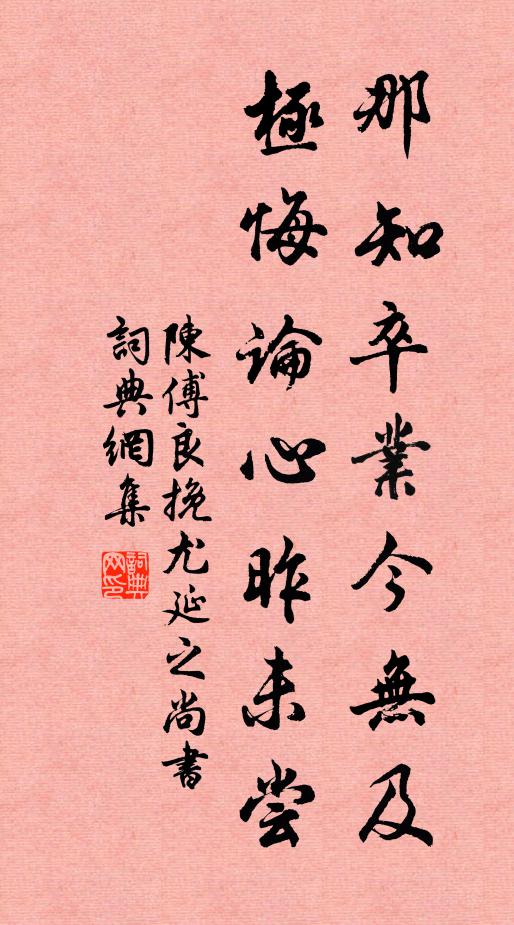 那知卒業今無及
極悔論心昨未尝
陳傅良挽尤延之尚書
詞典網集
詞典网印